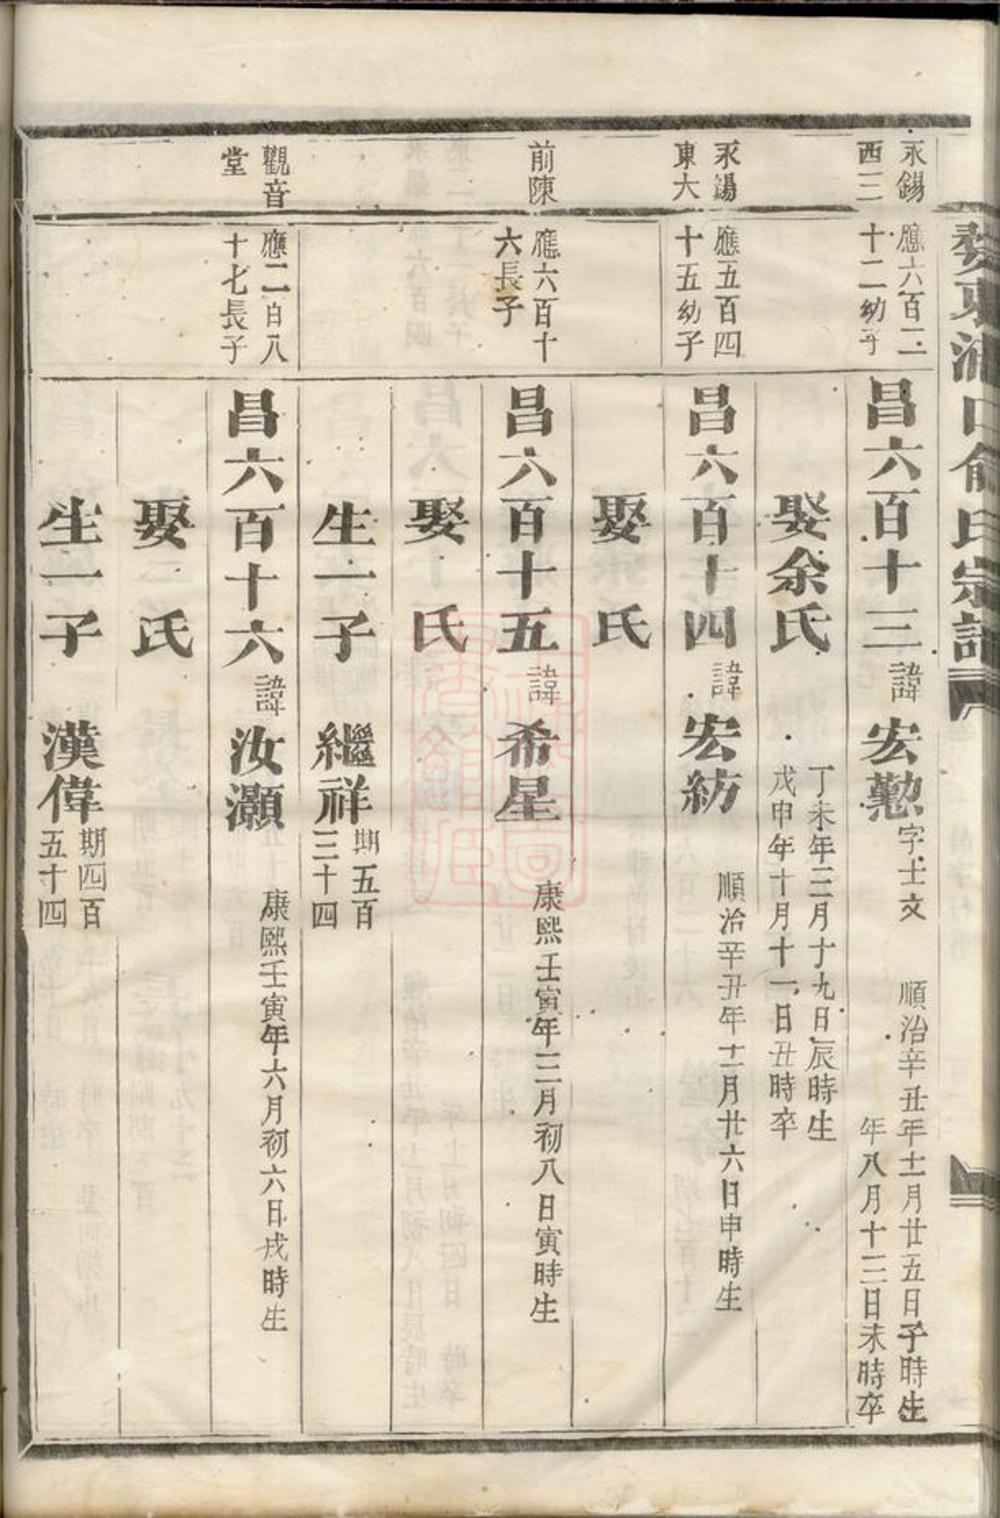 婺東浦口俞氏宗譜
永錫
西三
應六百二
十二幼子
昌六百十三
諱
宏懃
字士文
順治辛丑年十一月廿五日子時生
年八月十三日未時卒
娶余氏
丁未年三月十九日辰時生
戊申年十月十一日丑時卒
永錫
東大
應五百四
十五幼子
昌六百十四
諱
宏紡
順治辛丑年十二月廿六日申時生
娶 氏
前陳
應六百十
六長子
昌六百十五
諱
希星
康熙壬寅年三月初八日寅時生
娶 氏
生一子
繼祥
期五百
三十四
觀音
堂
應二百八
十七長子
昌六百十六
諱
汝灝
康熙壬寅年六月初六日戌時生
娶 氏
生一子
漢偉
期四百
五十四